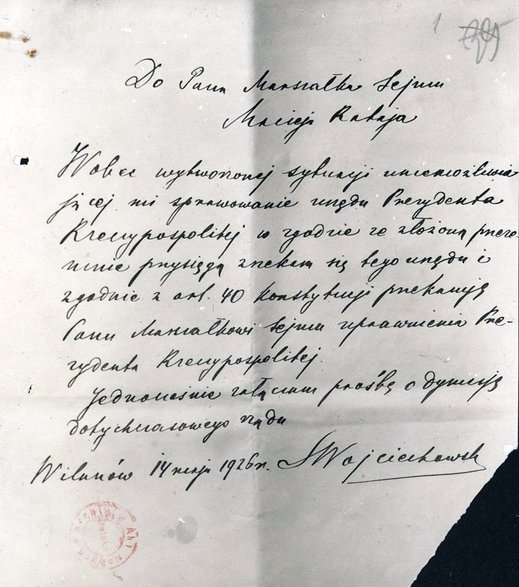 1
Do Pana Marszałka Sejmu
Macieja Rataja
Wobec wytworzonej sytuacji uniemożliwia
jącej mi sprawowanie urzędu Prezydenta
Rzeczypospolitej w zgodzie ze złożoną przeze
mnie przysięgą zrzekam się tego urzędu i
zgodnie z art. 40 Konstytucji przekazuję
Panu Marszałkowi Sejmu uprawnienia Pre-
zydenta Rzeczypospolitej.
Jednocześnie załączam prośbę o dymisję
dotychczasowego rządu
Wilanów 14 maja 1926 r. SWojciechowski